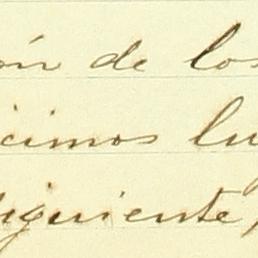 ón de los
icimos lu
siguiente,